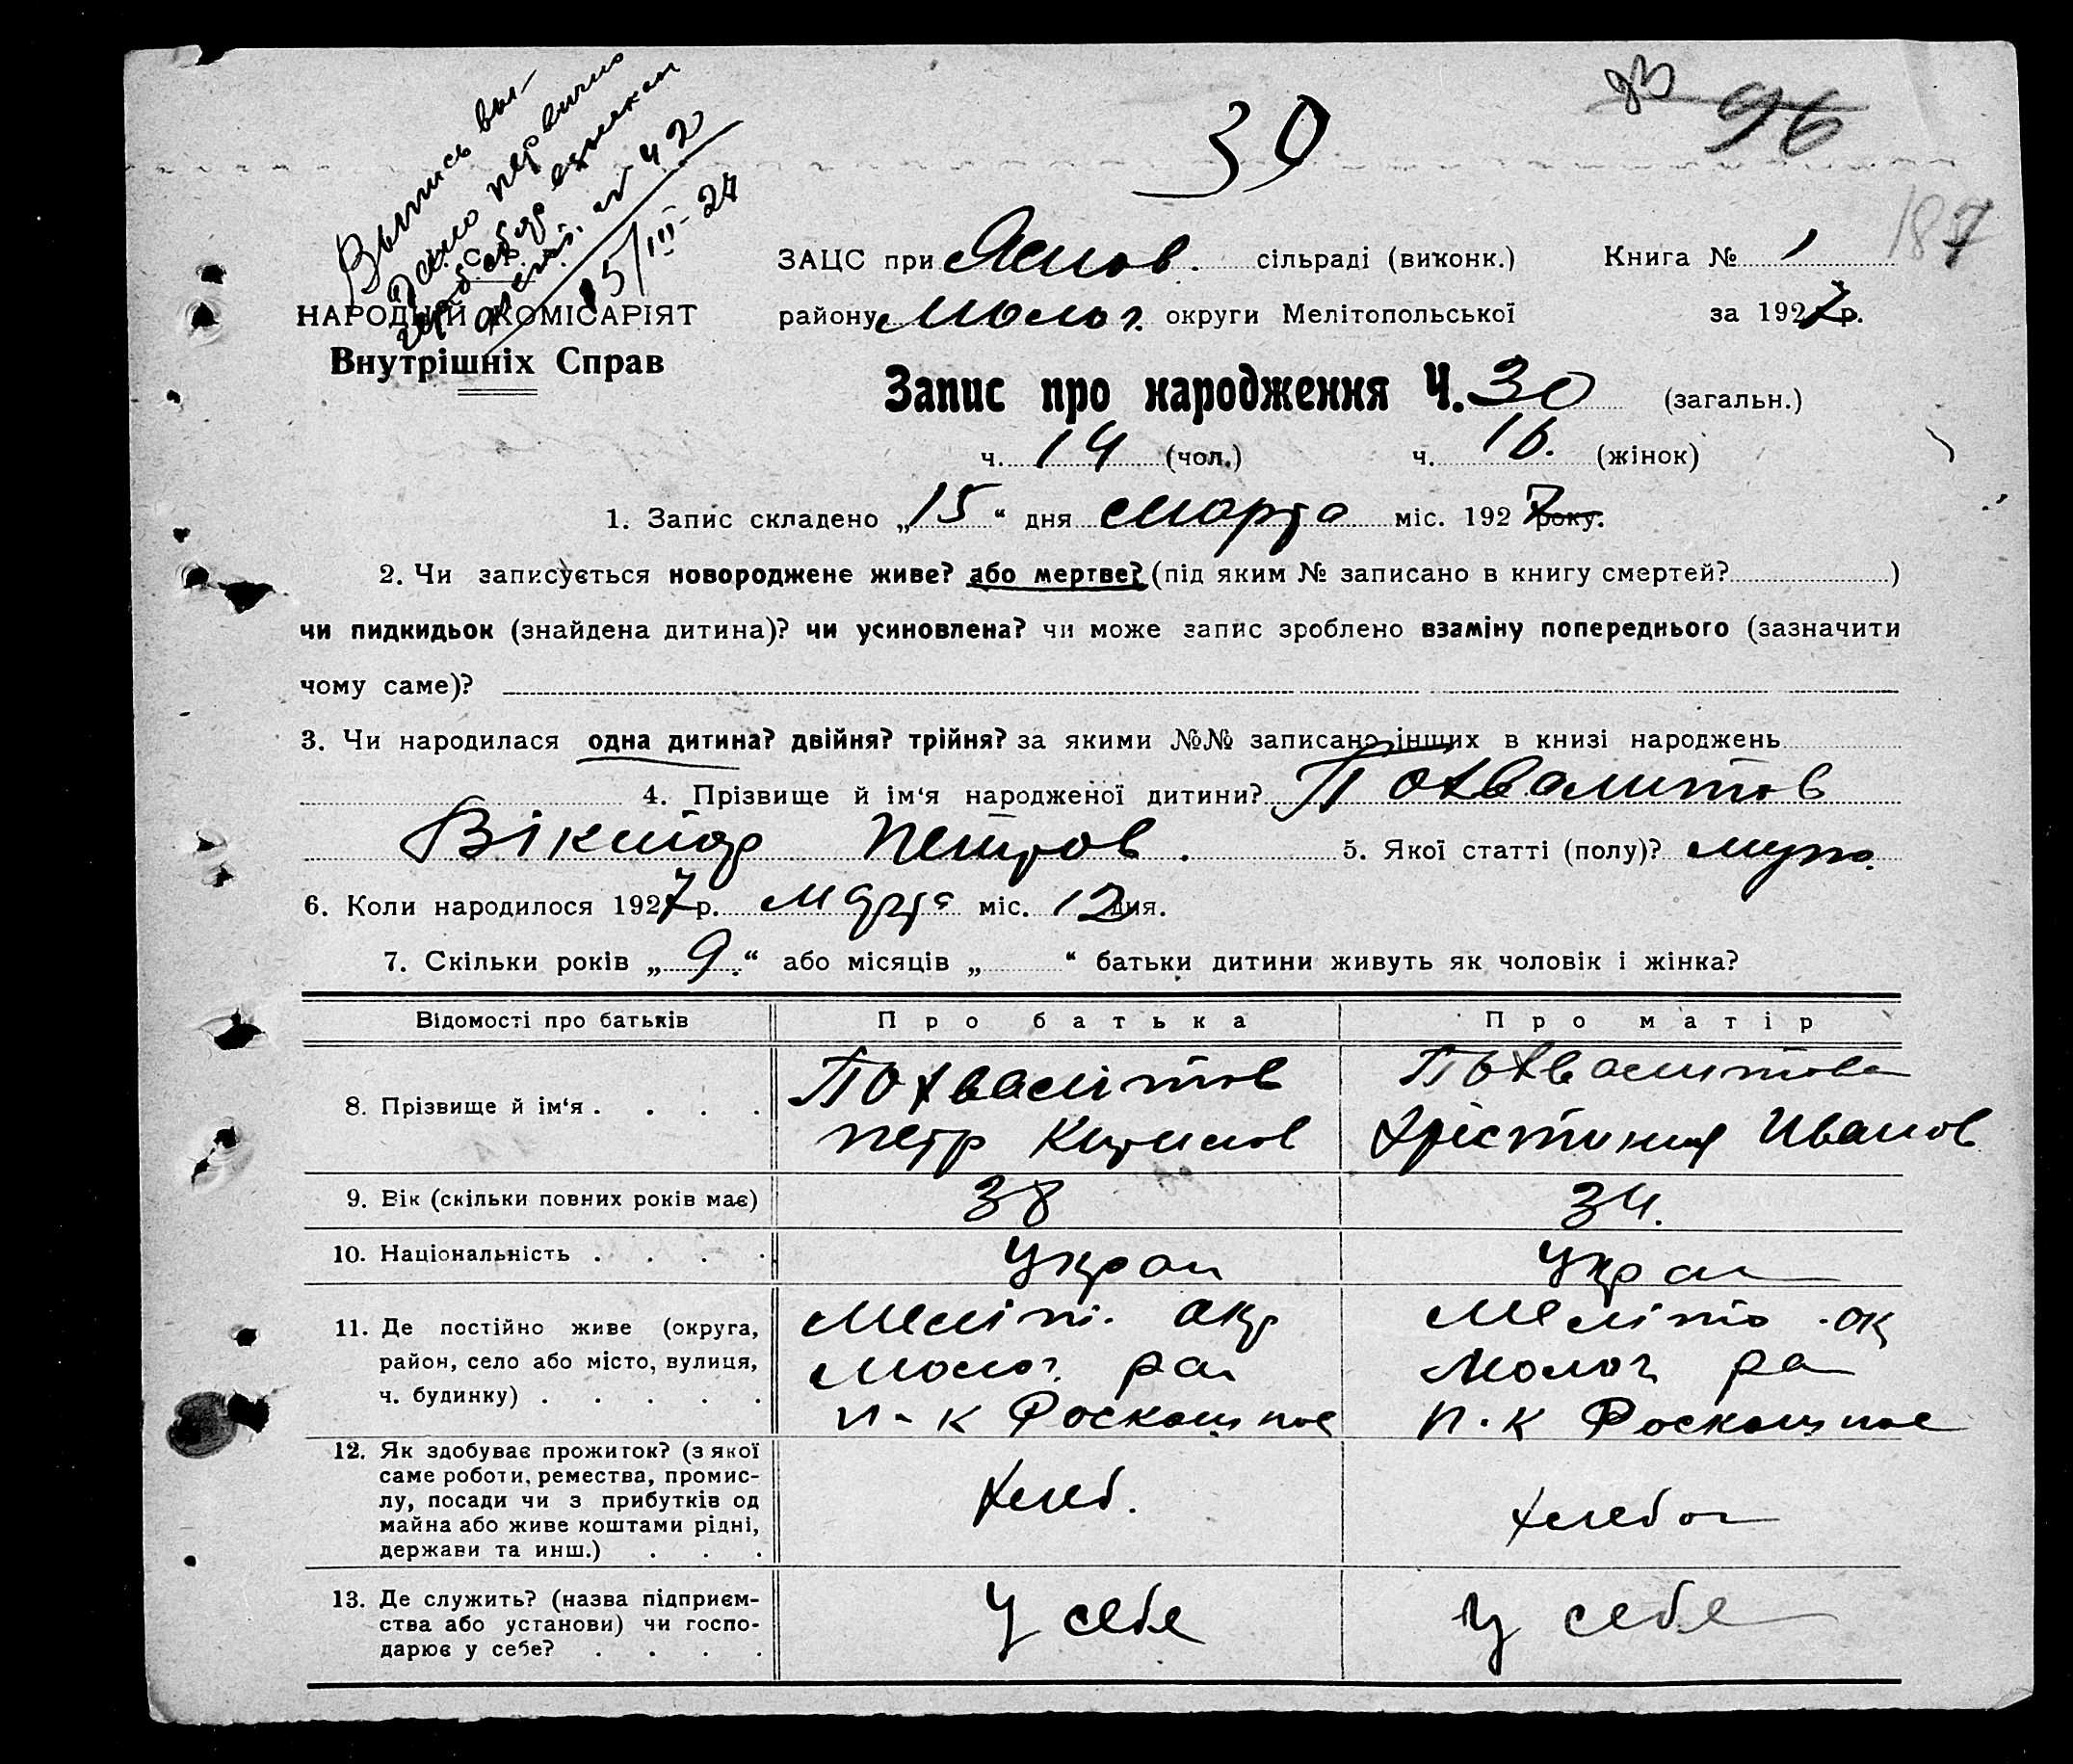 93 96
30
187
Выпись вы-
дано первично
5/III-27
У. С. Р. Р.
НАРОДНІЙ КОМІСАРІЯТ
Внутрішніх Справ
ЗАЦС при Яснов. сільраді (виконк.) Книга № 1
району Молоч. округи Мелітопольської за 1927 р.
Запис про народження Ч. 30 (загальн.)
ч. 14 (чол.) ч. 16. (жінок)
1. Запис складено „15“ дня марта міс. 1927 року.
2. Чи записується новороджене живе? або мертве? (під яким № записано в книгу смертей? )
чи пидкидьок (знайдена дитина)? чи усиновлена? чи може запис зроблено взаміну попереднього (зазначити
чому саме)?
3. Чи народилася одна дитина? двійня? трійня? за якими №№ записано інших в книзі народжень
4. Прізвище й ім‘я народженої дитини? Похвалитов
Віктор Петров. 5. Якої статті (полу)? муж.
6. Коли народилося 1927 р. марта міс. 12 дня.
7. Скільки років „9.“ або місяців „ “ батьки дитини живуть як чоловік і жінка?
Відомості про батьків Про батька Про матір
8. Прізвище й ім‘я . . . . Похвалітов Похвалитова
Петр Кирилов Хрістиния Иванов
9. Вік (скільки повних років має) 38 34.
10. Національність . . . . Украи Украи
11. Де постійно живе (округа, Меліт. окр Меліто. ок
район, село або місто, вулиця, Молоч. ра Молоч ра
ч. будинку) . . . . . п-к Роскошное п-к Роскошное
12. Як здобуває прожиток? (з якої
саме роботи, ремества, промис-
лу, посади чи з прибутків од Хлеб. хлебоп
майна або живе коштами рідні,
держави та инш.) . . .
13. Де служить? (назва підприєм-
ства або установи) чи госпо- У себе У себе
дарює у себе? . . . .